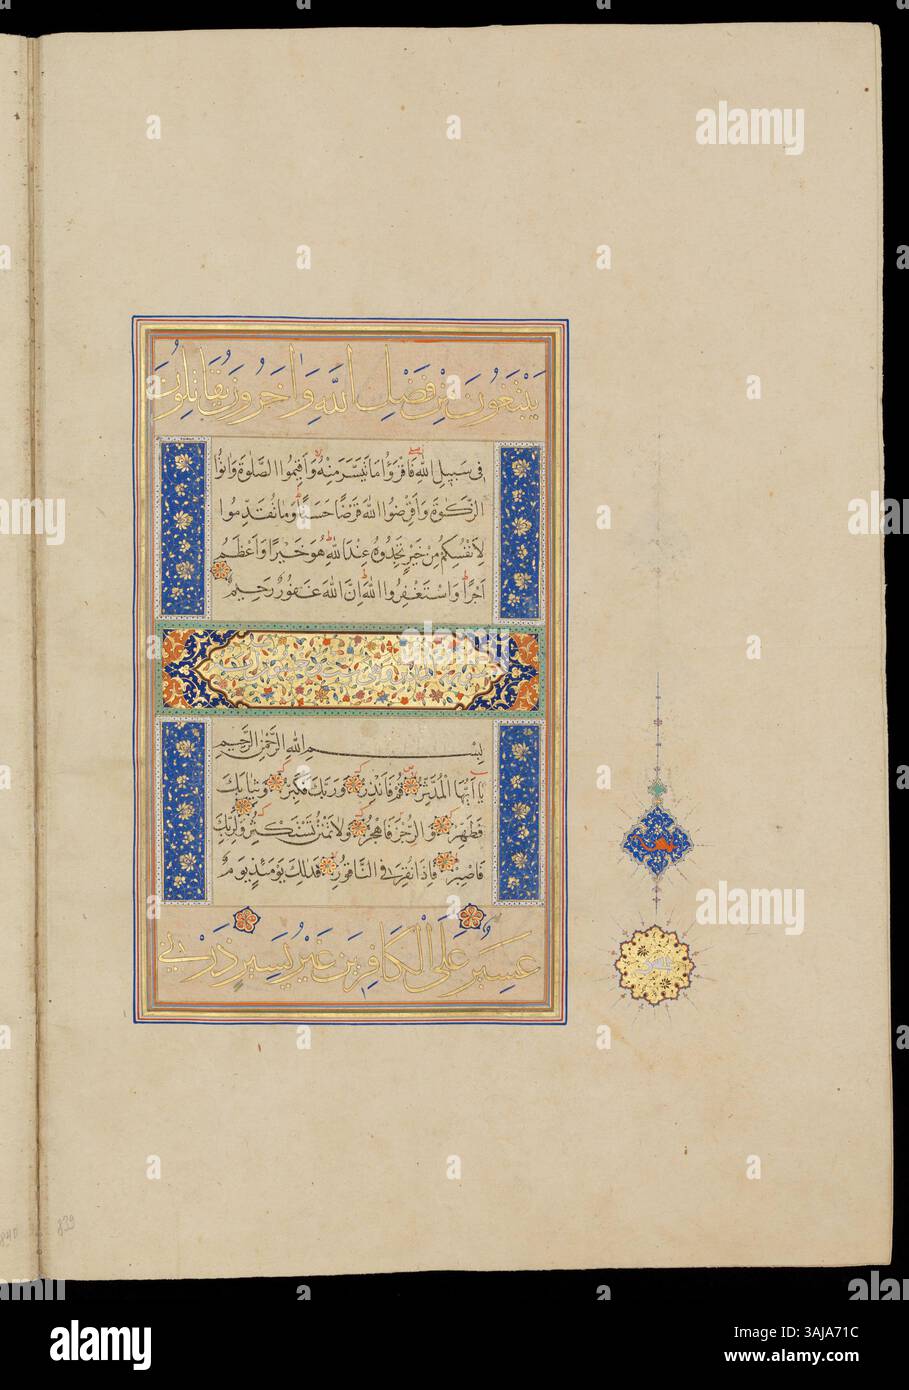 يَبْتَغُونَ مِنْ فَضْلِ اللَّهِ وَآخَرُونَ يُقَاتِلُونَ
فِي سَبِيلِ اللهِ فَاقْرَؤُا مَا تَيَسَّرَ مِنْهُ وَاَقِيمُوا الصَّلوةَ وَاتُوا
الزَّكوةَ وَاَقْرِضُوا اللهَ قَرْضًا حَسَنًا وَمَا تُقَدِّمُوا
لِاَنْفُسِكُمْ مِنْ خَيْرٍ تَجِدُوهُ عِنْدَ اللهِ هُوَ خَيْرًا وَاَعْظَمَ
اَجْرًا وَاسْتَغْفِرُوا اللهَ اِنَّ اللهَ غَفُورٌ رَحِيمٌ
بِسْمِ اللهِ الرَّحْمنِ الرَّحِيمِ
يَا اَيُّهَا الْمُدَّثِّرُ قُمْ فَاَنْذِرْ وَرَبَّكَ فَكَبِّرْ وَثِيَابَكَ
فَطَهِّرْ وَالرُّجْزَ فَاهْجُرْ وَلَا تَمْنُنْ تَسْتَكْثِرُ وَلِرَبِّكَ
فَاصْبِرْ فَاِذَا نُقِرَ فِي النَّاقُورِ فَذلِكَ يَوْمَئِذٍ يَوْمٌ
عَسِيرٌ عَلَى الْكَافِرِينَ غَيْرُ يَسِيرٍ ذَرْنِي
839
alamy
Image ID: 3AJA71C
www.alamy.com